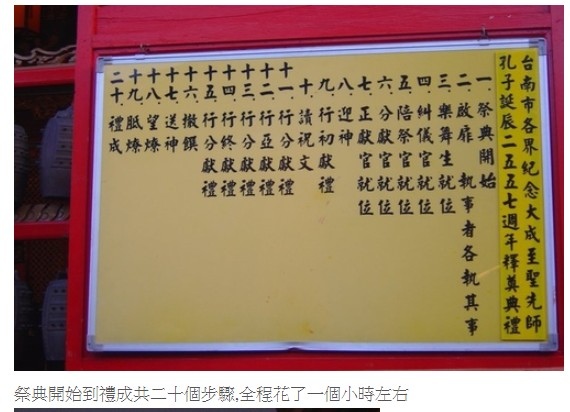 台南市各界紀念大成至聖先師
孔子誕辰二五五七週年釋奠典禮
一.祭典開始
二.啟扉 執事者各執其事
三.樂舞生就位
四.糾儀官就位
五.陪祭官就位
六.分獻官就位
七.正獻官就位
八.迎神
九.行初獻禮
十.讀祝文
十一.行分獻禮
十二.行亞獻禮
十三.行分獻禮
十四.行終獻禮
十五.行分獻禮
十六.撤饌
十七.送神
十八.望燎
十九.燎
二十.禮成
祭典開始到禮成共二十個步驟,全程花了一個小時左右